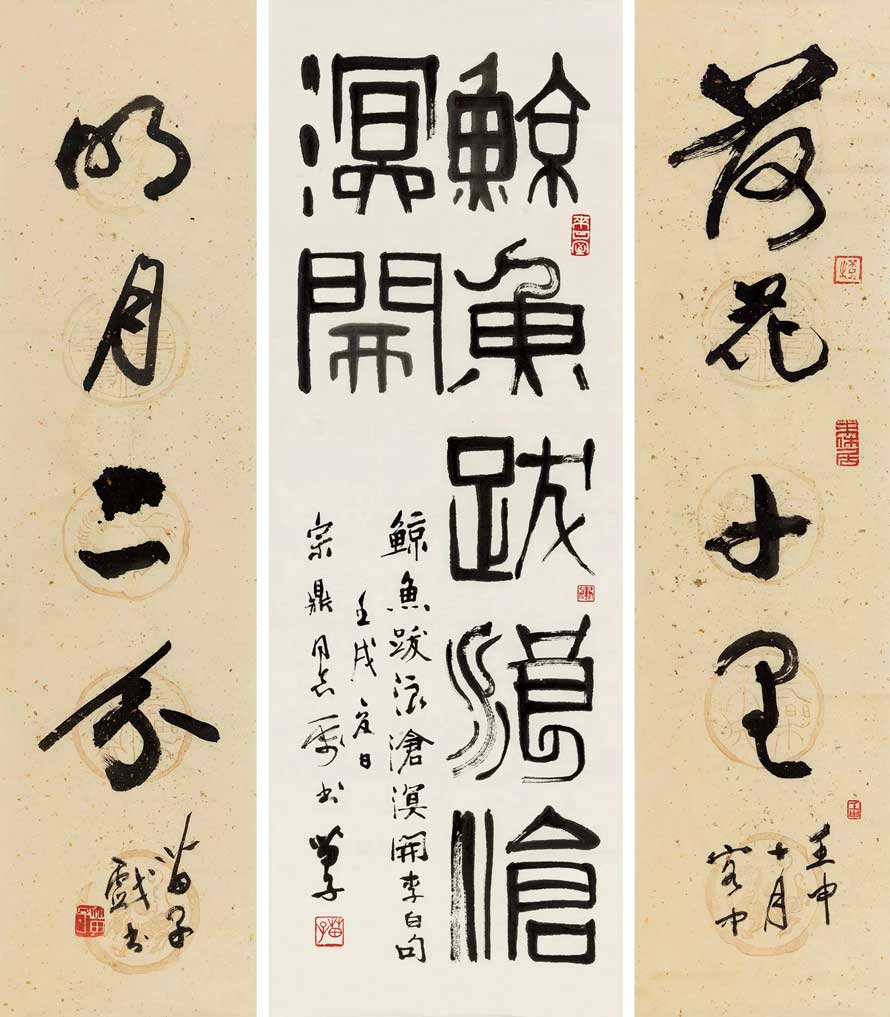 荷花十里
壬申
十月
客中
鯨魚跋浪滄
溟開
鯨魚跋浪滄溟開李白句
壬戌夏日
宗鼎同志属书 苗子
苗子
明月二分
苗子
戲书